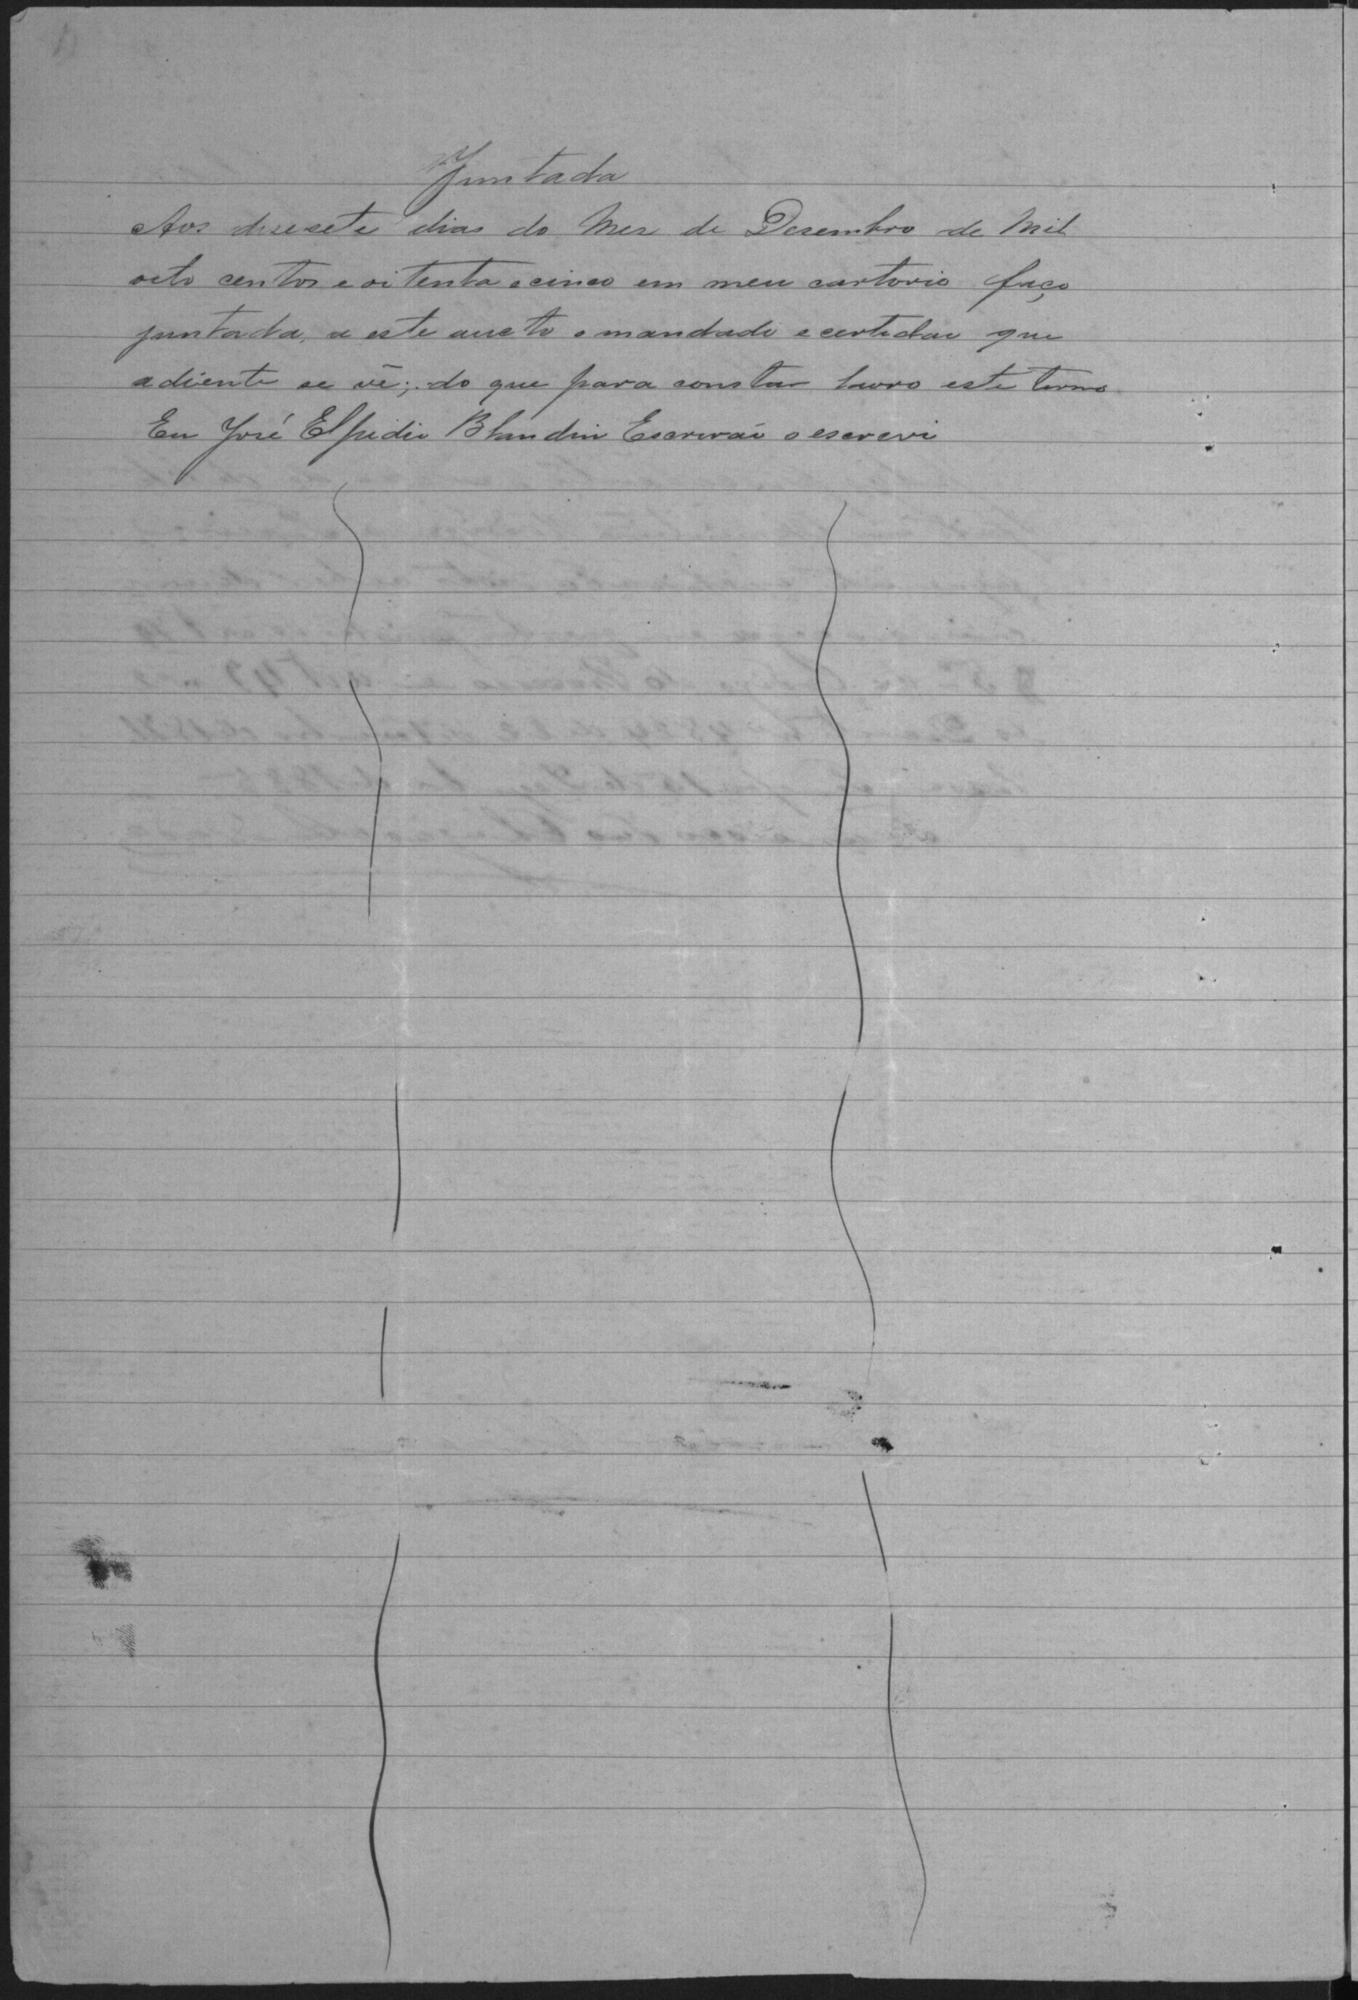 Juntada
Aos desesete dias do Mez de Desembro de Mil
oito centos e oitenta e cinco em meu cartorio faço
juntada, a este aucto o mandado e certidão que
adiente se vê; do que para constar lavro este termo
Eu José Elpidio Blandin Escrivão o escrevi